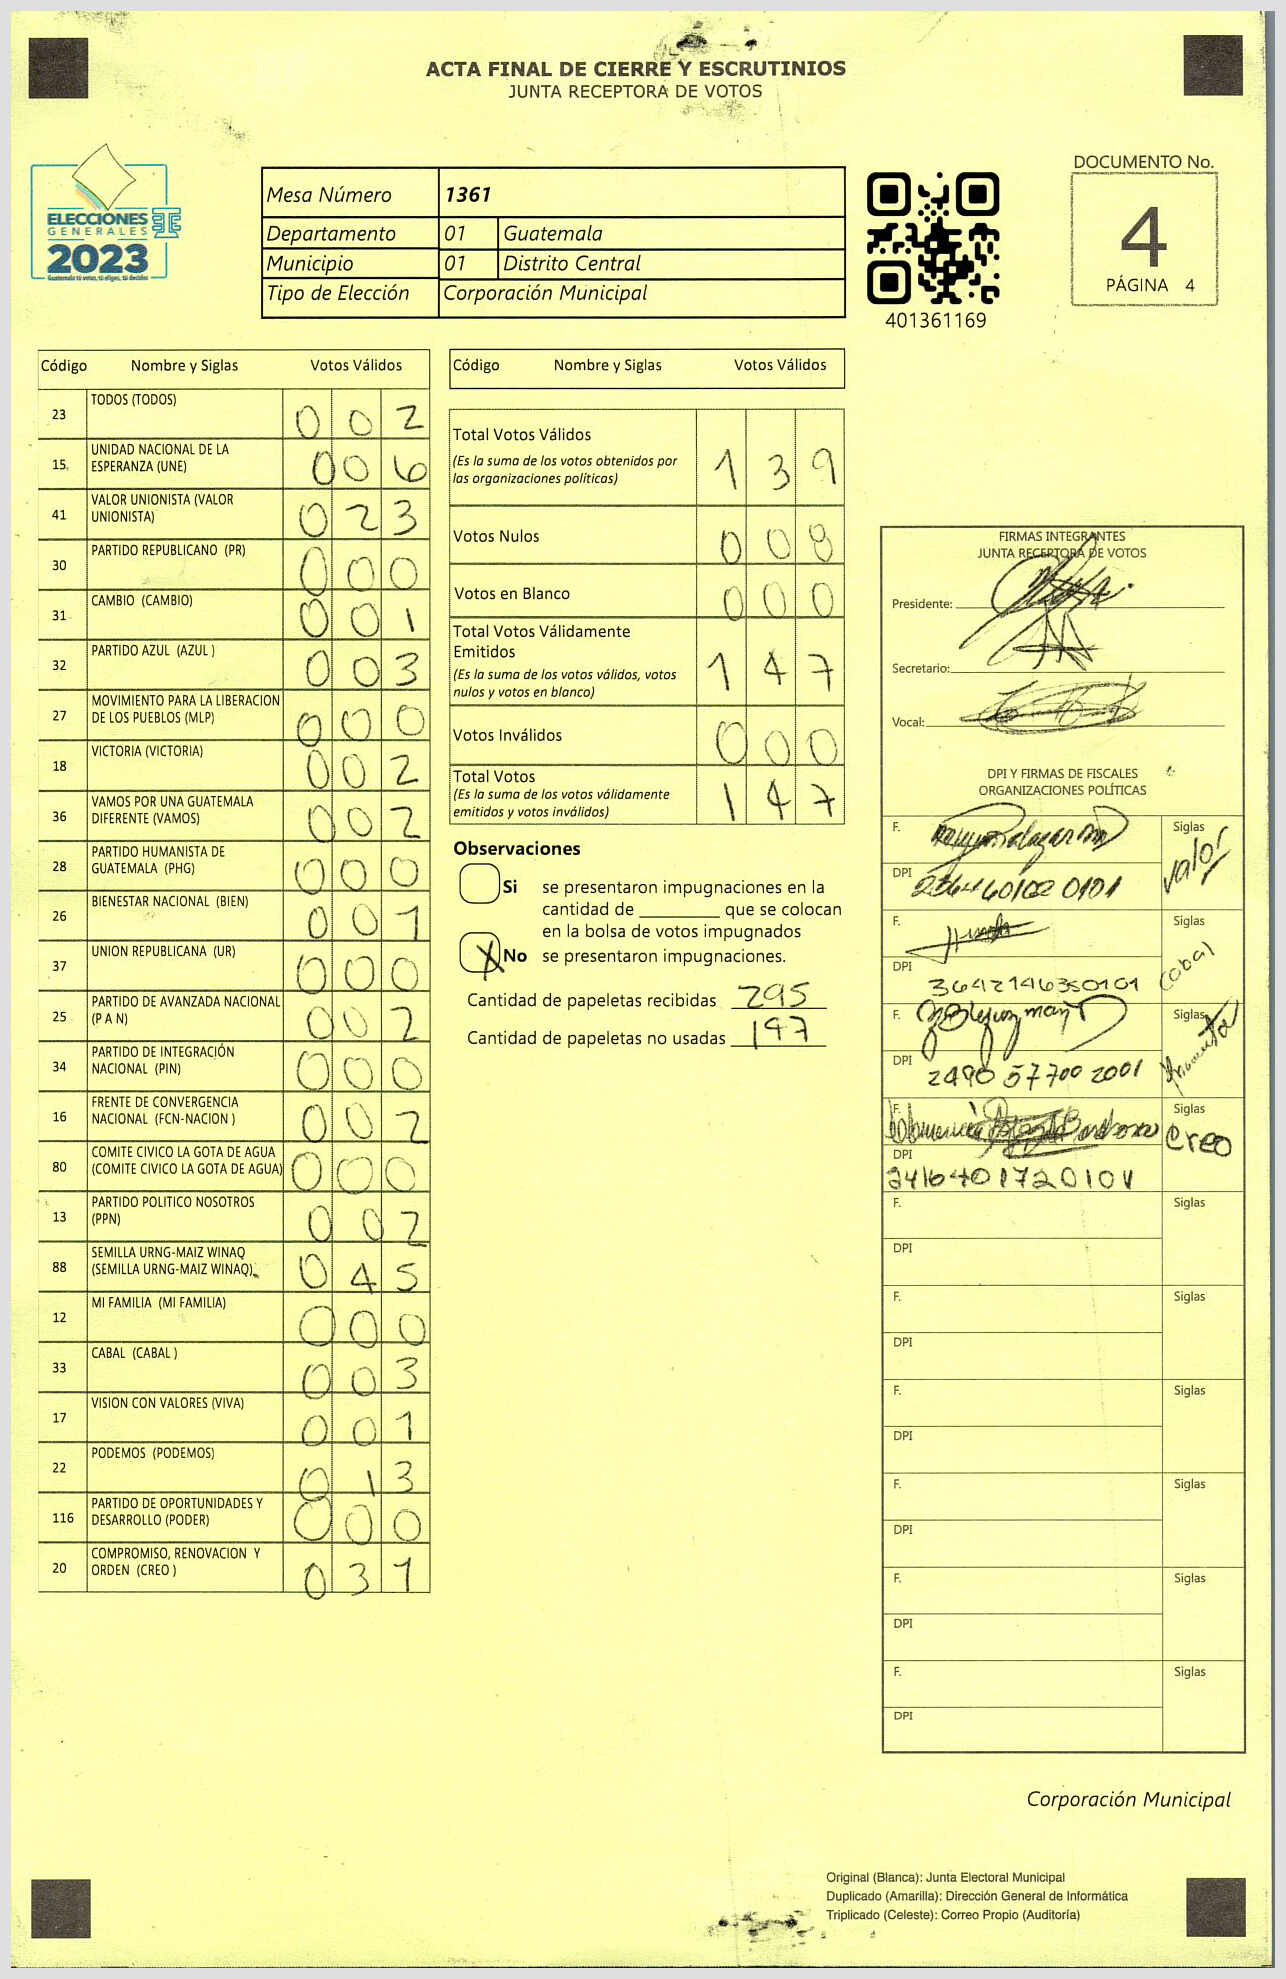 ACTA FINAL DE CIERRE Y ESCRUTINIOS
JUNTA RECEPTORA DE VOTOS
ELECCIONES
GENERALES
2023
Guatemala tú votas, tú eliges, tú decides
Mesa Número 1361
Departamento 01 Guatemala
Municipio 01 Distrito Central
Tipo de Elección Corporación Municipal
401361169
DOCUMENTO No.
4
PÁGINA 4
Código Nombre y Siglas Votos Válidos
23 TODOS (TODOS) 0 0 2
15 UNIDAD NACIONAL DE LA
ESPERANZA (UNE) 0 0 6
41 VALOR UNIONISTA (VALOR
UNIONISTA) 0 2 3
30 PARTIDO REPUBLICANO (PR) 0 0 0
31 CAMBIO (CAMBIO) 0 0 1
32 PARTIDO AZUL (AZUL ) 0 0 3
27 MOVIMIENTO PARA LA LIBERACION
DE LOS PUEBLOS (MLP) 0 0 0
18 VICTORIA (VICTORIA) 0 0 2
36 VAMOS POR UNA GUATEMALA
DIFERENTE (VAMOS) 0 0 2
28 PARTIDO HUMANISTA DE
GUATEMALA (PHG) 0 0 0
26 BIENESTAR NACIONAL (BIEN) 0 0 1
37 UNION REPUBLICANA (UR) 0 0 0
25 PARTIDO DE AVANZADA NACIONAL
(P A N) 0 0 2
34 PARTIDO DE INTEGRACIÓN
NACIONAL (PIN) 0 0 0
16 FRENTE DE CONVERGENCIA
NACIONAL (FCN-NACION ) 0 0 2
80 COMITE CIVICO LA GOTA DE AGUA
(COMITE CIVICO LA GOTA DE AGUA) 0 0 0
13 PARTIDO POLITICO NOSOTROS
(PPN) 0 0 2
88 SEMILLA URNG-MAIZ WINAQ
(SEMILLA URNG-MAIZ WINAQ) 0 4 5
12 MI FAMILIA (MI FAMILIA) 0 0 0
33 CABAL (CABAL ) 0 0 3
17 VISION CON VALORES (VIVA) 0 0 1
22 PODEMOS (PODEMOS) 0 1 3
116 PARTIDO DE OPORTUNIDADES Y
DESARROLLO (PODER) 0 0 0
20 COMPROMISO, RENOVACION Y
ORDEN (CREO ) 0 3 1
Código Nombre y Siglas Votos Válidos
Total Votos Válidos
(Es la suma de los votos obtenidos por
las organizaciones políticas) 1 3 9
Votos Nulos 0 0 8
Votos en Blanco 0 0 0
Total Votos Válidamente
Emitidos
(Es la suma de los votos válidos, votos
nulos y votos en blanco) 1 4 7
Votos Inválidos 0 0 0
Total Votos
(Es la suma de los votos válidamente
emitidos y votos inválidos) 1 4 7
Observaciones
Si se presentaron impugnaciones en la
cantidad de ________ que se colocan
en la bolsa de votos impugnados
X No se presentaron impugnaciones.
Cantidad de papeletas recibidas 295
Cantidad de papeletas no usadas 147
FIRMAS INTEGRANTES
JUNTA RECEPTORA DE VOTOS
Presidente:
Secretario:
Vocal:
DPI Y FIRMAS DE FISCALES
ORGANIZACIONES POLÍTICAS
F. Siglas
valor
DPI
F. Siglas
cabal
DPI 3642146350101
F. Siglas
DPI 2490 57700 2001
F. Siglas
Creo
DPI
F. Siglas
DPI
F. Siglas
DPI
F. Siglas
DPI
F. Siglas
DPI
F. Siglas
DPI
F. Siglas
DPI
Corporación Municipal
Original (Blanca): Junta Electoral Municipal
Duplicado (Amarilla): Dirección General de Informática
Triplicado (Celeste): Correo Propio (Auditoría)